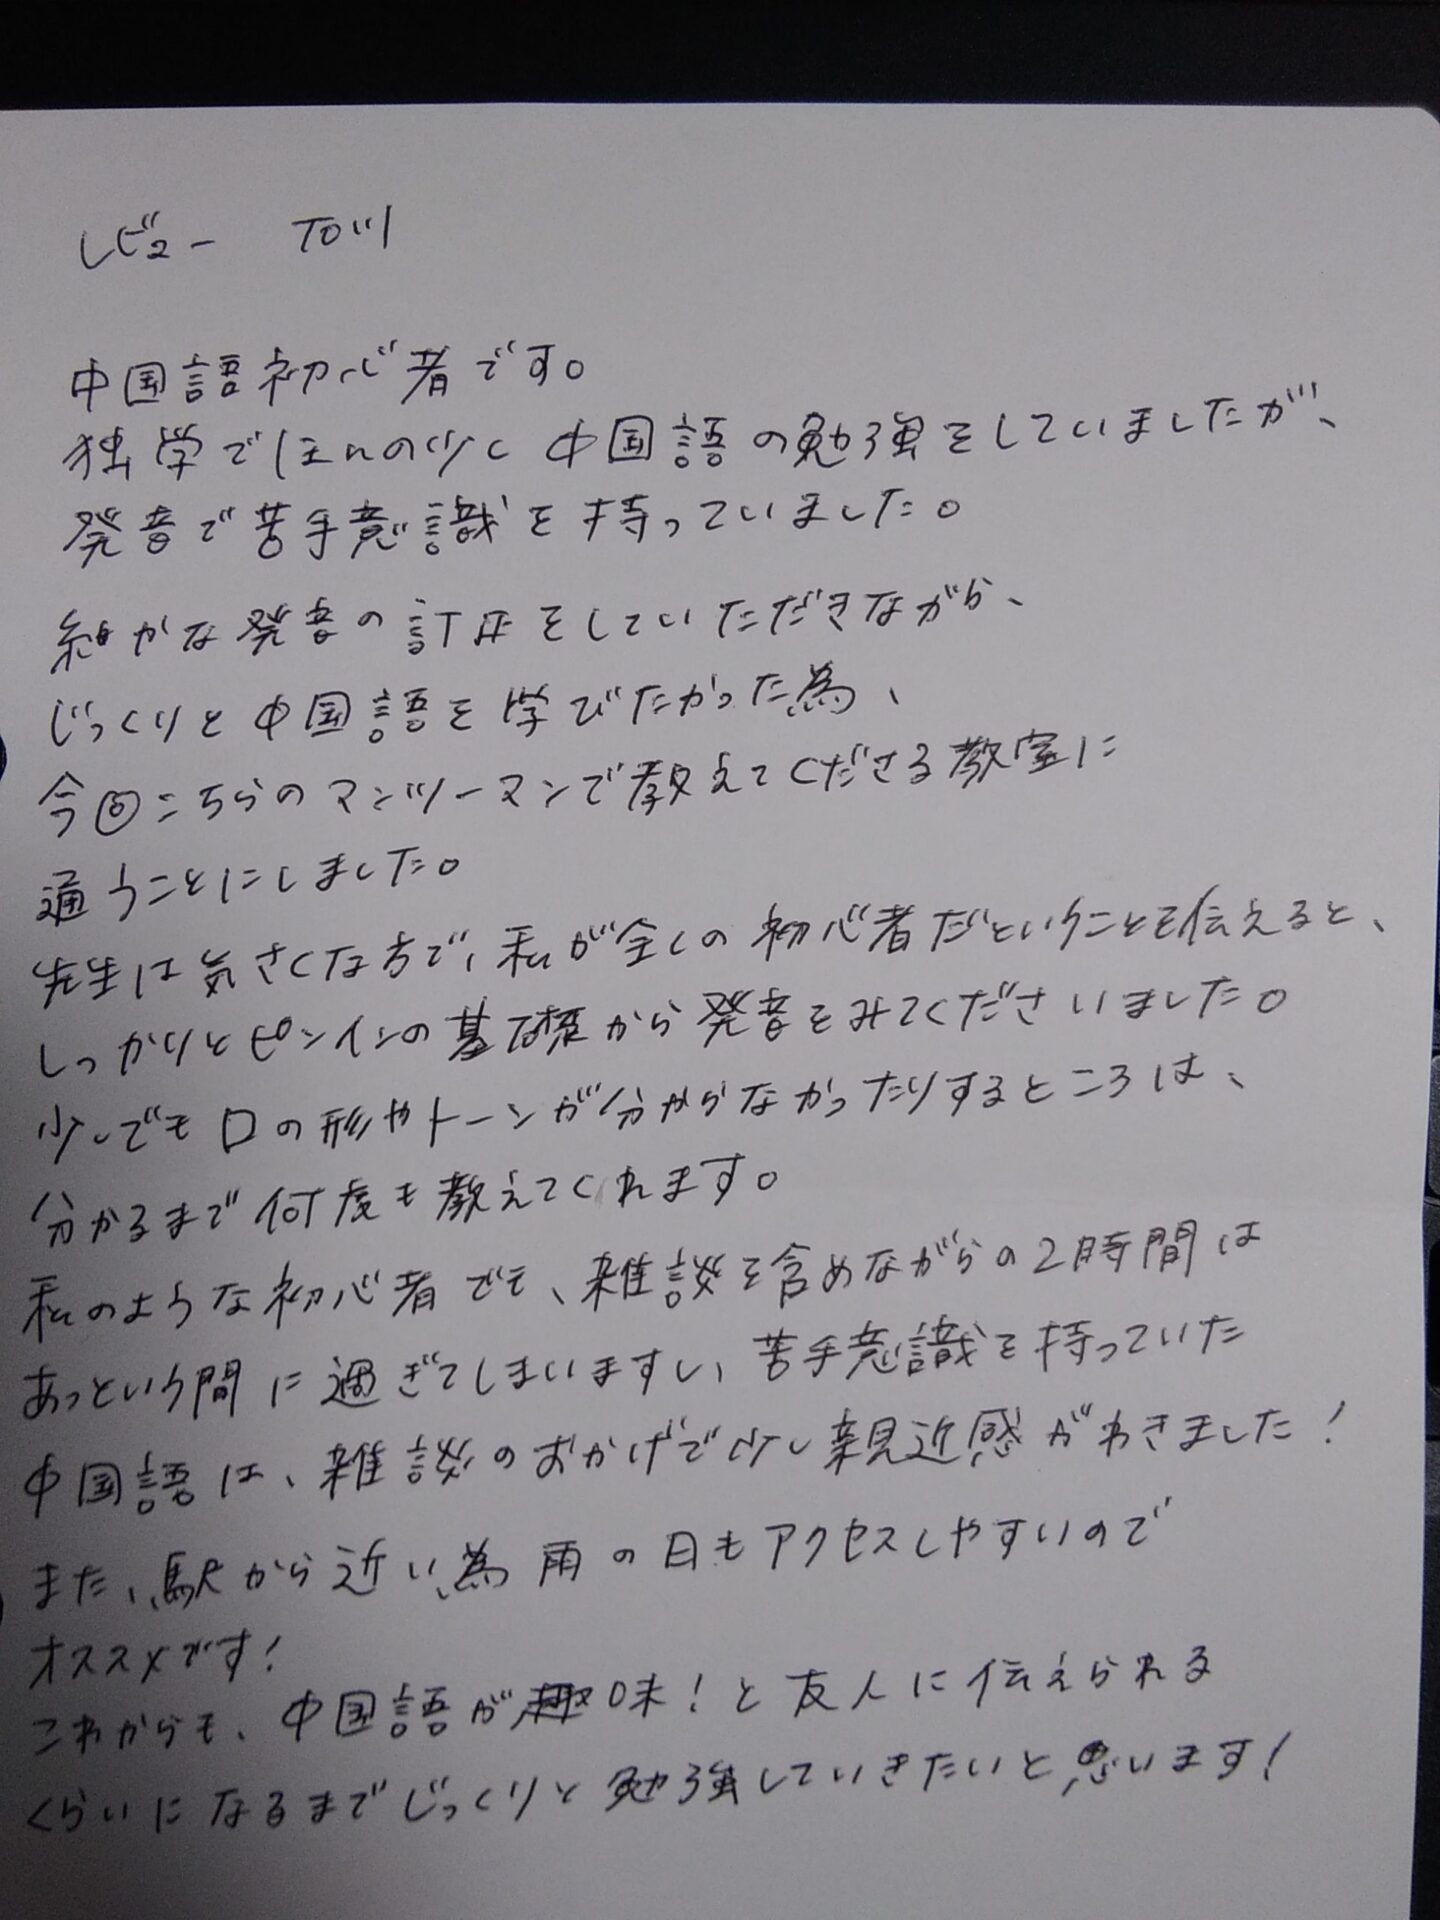 レビュー
中国語初心者です。
独学でほんの少し中国語の勉強をしていましたが、
発音で苦手意識を持っていました。
細かな発音の訂正をしていただきながら、
じっくりと中国語を学びたかった為、
今回こちらのマンツーマンで教えてくださる教室に
通うことにしました。
先生は気さくな方で、私が全くの初心者だということを伝えると、
しっかりとピンインの基礎から発音をみてくださいました。
少しでも口の形やトーンが分からなかったりするところは、
分かるまで何度も教えてくれます。
私のような初心者でも、雑談を含めながらの2時間は
あっという間に過ぎてしまいますし、苦手意識を持っていた
中国語は、雑談のおかげで少し親近感がわきました!
また、駅から近い為雨の日もアクセスしやすいので
オススメです!
これからも、中国語が趣味!と友人に伝えられる
くらいになるまでじっくりと勉強していきたいと思います!